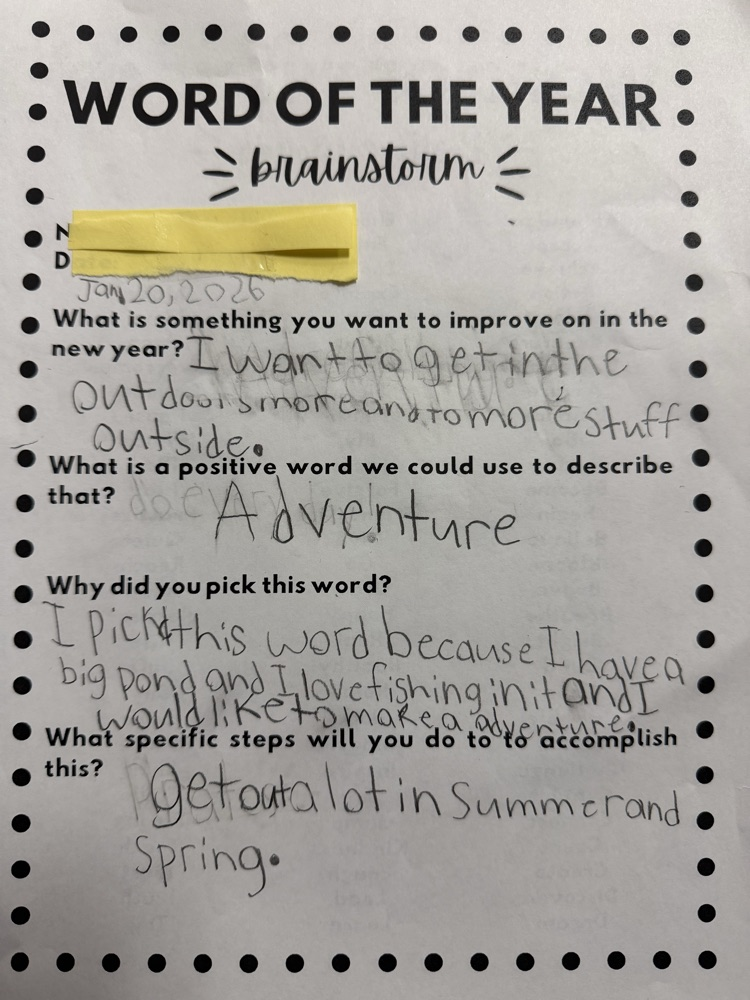 WORD OF THE YEAR
brainstorm
N
D
Jan 20, 2026
What is something you want to improve on in the
new year? I want to get in the
outdoors more and to more stuff
outside.
What is a positive word we could use to describe
that? Adventure
Why did you pick this word?
I pickd this word because I have a
big pond and I love fishing in it and I
would like to make a adventure.
What specific steps will you do to to accomplish
this?
get out a lot in Summer and
Spring.